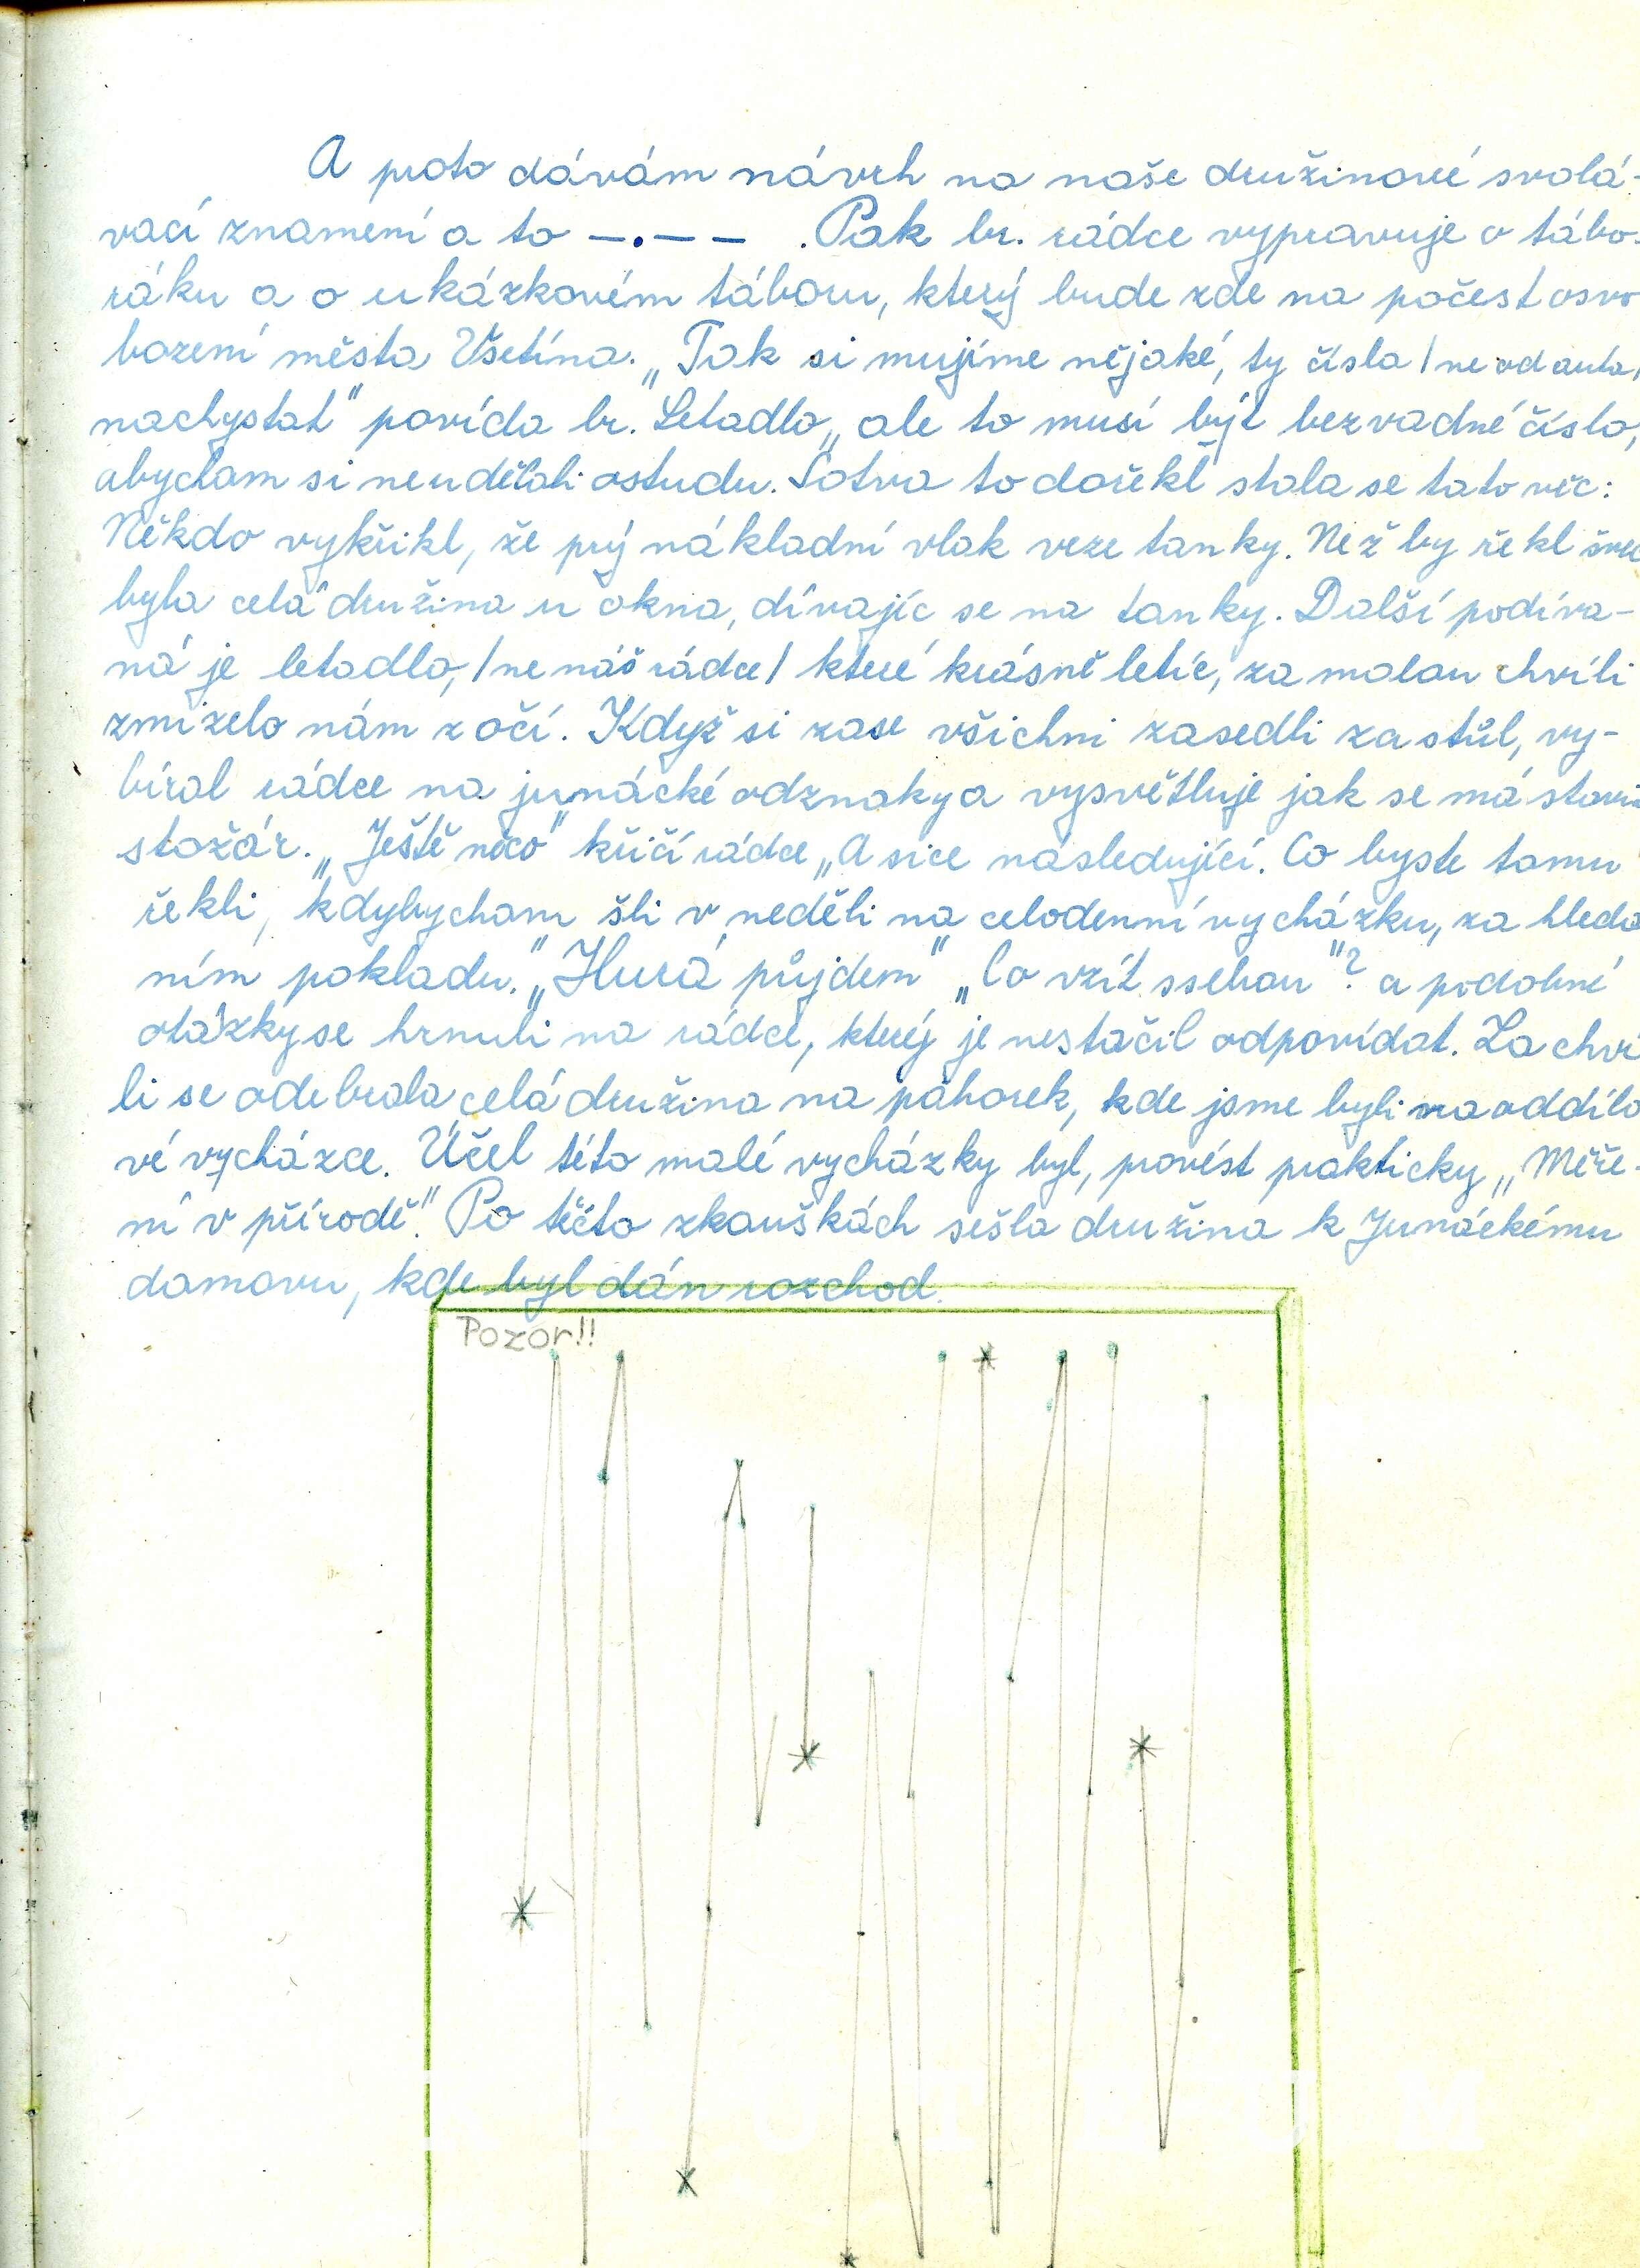 A proto dávám návrh na naše družinové svolá-
vací znamení a to —.—— . Pak br. rádce vypravuje o tábo-
ráku a o ukázkovém táboru, který bude zde na počest osvo
bození města Všetína. „Tak si mujíme nějaké, ty čísla /ne od auta/
nachystat" povída br. Letadlo „ale to musí být bezvadné číslo,
abychom si neudělali ostudu. Sotva to dořekl stala se tato věc:
Někdo vykřikl, že prý nákladní vlak veze tanky. Než by řekl švec
byla celá družina u okna, dívajíc se na tanky. Další podíva-
ná je letadlo, /ne náš rádce/ které krásně letíc, za malou chvíli
zmizelo nám z očí. Když si zase všichni zasedli za stůl, vy-
bíral rádce na junácké odznaky a vysvětluje jak se má staví
stožár. „Ještě něco" křičí rádce „A sice následující. Co byste tomu
řekli, kdybychom šli v neděli na celodenní vycházku, za hledá
ním pokladu." „Hurá půjdem" „Co vzít ssebou"? a podobné
otázky se hrnuli na rádce, který je nestačil odpovídat. Za chví
li se odebrala celá družina na pahorek, kde jsme byli na oddílo
vé vycházce. Účel této malé vycházky byl, provést prakticky „Měře-
ní v přírodě." Po těčto zkouškách sešla družina k Junáckému
domovu, kde byl dán rozchod.
Pozor!!